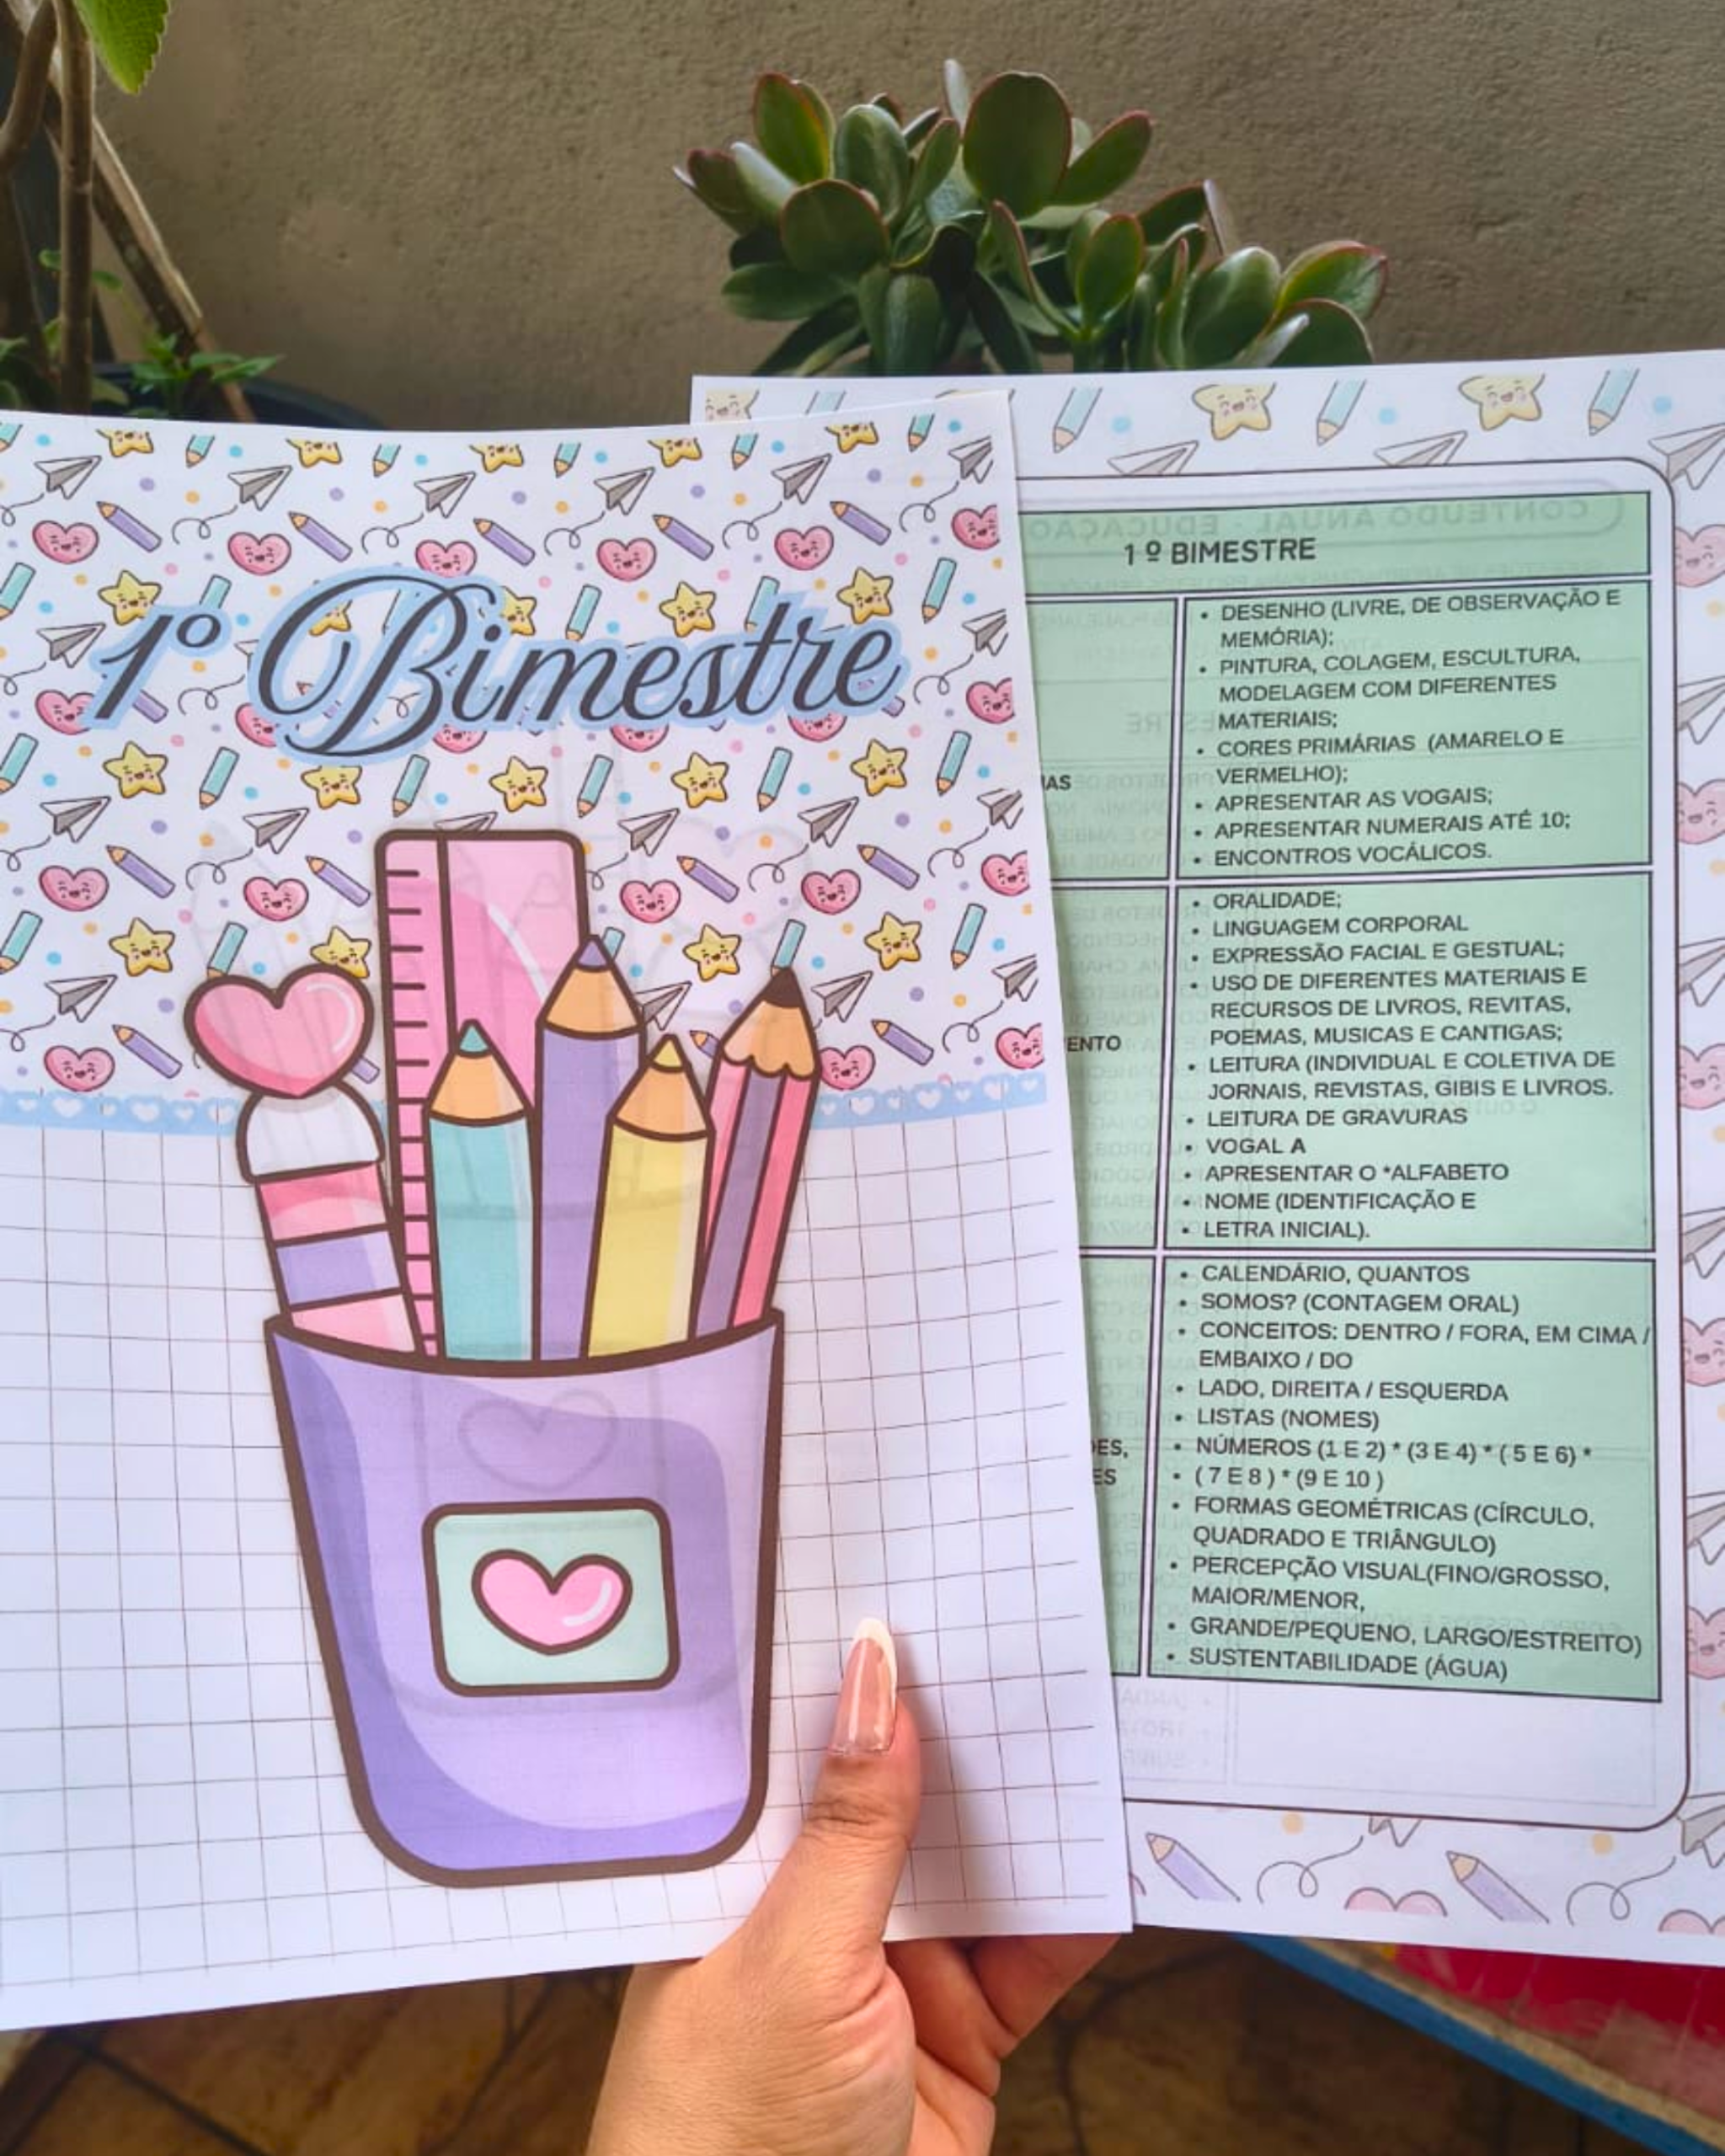 1º Bimestre
1 º BIMESTRE
• DESENHO (LIVRE, DE OBSERVAÇÃO E
MEMÓRIA);
• PINTURA, COLAGEM, ESCULTURA,
MODELAGEM COM DIFERENTES
MATERIAIS;
• CORES PRIMÁRIAS (AMARELO E
VERMELHO);
• APRESENTAR AS VOGAIS;
• APRESENTAR NUMERAIS ATÉ 10;
• ENCONTROS VOCÁLICOS.
• ORALIDADE;
• LINGUAGEM CORPORAL
• EXPRESSÃO FACIAL E GESTUAL;
• USO DE DIFERENTES MATERIAIS E
RECURSOS DE LIVROS, REVITAS,
POEMAS, MUSICAS E CANTIGAS;
• LEITURA (INDIVIDUAL E COLETIVA DE
JORNAIS, REVISTAS, GIBIS E LIVROS.
• LEITURA DE GRAVURAS
• VOGAL A
• APRESENTAR O *ALFABETO
• NOME (IDENTIFICAÇÃO E
• LETRA INICIAL).
• CALENDÁRIO, QUANTOS
• SOMOS? (CONTAGEM ORAL)
• CONCEITOS: DENTRO / FORA, EM CIMA /
EMBAIXO / DO
• LADO, DIREITA / ESQUERDA
• LISTAS (NOMES)
• NÚMEROS (1 E 2) * (3 E 4) * ( 5 E 6) *
• ( 7 E 8 ) * (9 E 10 )
• FORMAS GEOMÉTRICAS (CÍRCULO,
QUADRADO E TRIÂNGULO)
• PERCEPÇÃO VISUAL(FINO/GROSSO,
MAIOR/MENOR,
• GRANDE/PEQUENO, LARGO/ESTREITO)
• SUSTENTABILIDADE (ÁGUA)